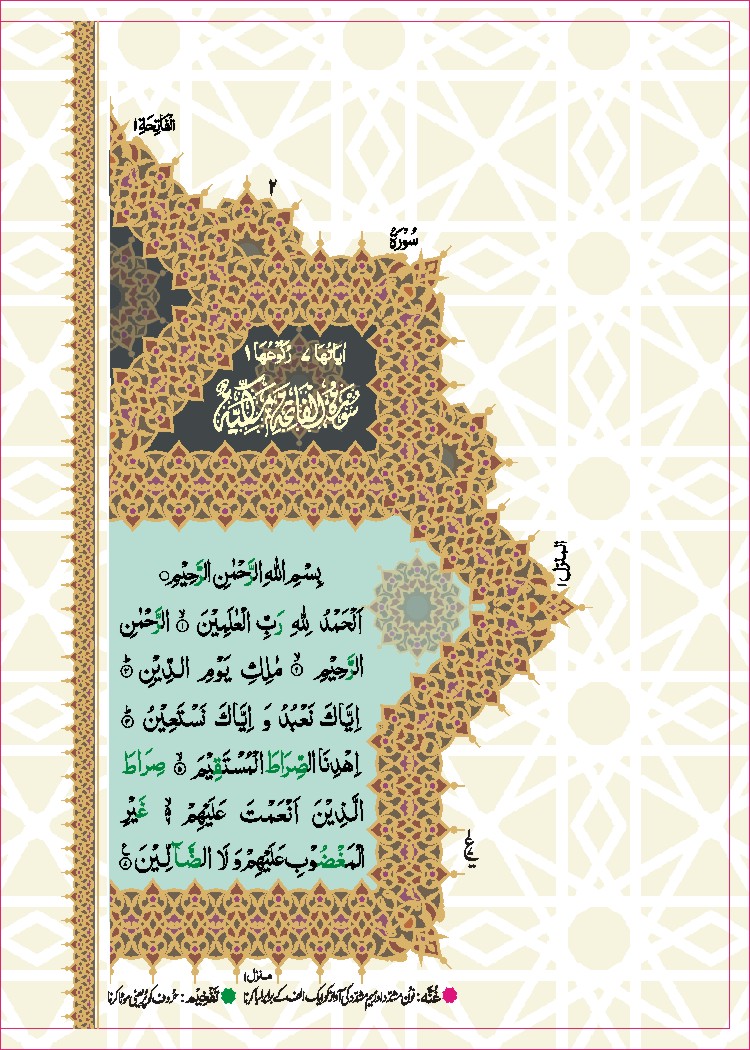 اَلْفَاتِحَةِ ١
٢
سُوْرَةُ
اٰیَاتُهَا ٧ رُكُوْعُهَا ١
سُوْرَةُ الْفَاتِحَةِ مَكِّیَّةٌ
بِسْمِ اللّٰهِ الرَّحْمٰنِ الرَّحِیْمِ
اَلْحَمْدُ لِلّٰهِ رَبِّ الْعٰلَمِیْنَ ۙ﴿۱﴾ الرَّحْمٰنِ
الرَّحِیْمِ ۙ﴿۲﴾ مٰلِكِ یَوْمِ الدِّیْنِ ؕ﴿۳﴾
اِیَّاكَ نَعْبُدُ وَ اِیَّاكَ نَسْتَعِیْنُ ؕ﴿۴﴾
اِهْدِنَا الصِّرَاطَ الْمُسْتَقِیْمَ ۙ﴿۵﴾ صِرَاطَ
الَّذِیْنَ اَنْعَمْتَ عَلَیْهِمْ ۙ۬ غَیْرِ
الْمَغْضُوْبِ عَلَیْهِمْ وَ لَا الضَّآلِّیْنَ
المنزل ١
منزل ١
غُنَّه: نون مشدّد اور میم مشدّد کی آواز کو ایک الف کے برابر لمبا کرنا تَفْخِیْم: حروف کو پُر یعنی موٹا کرنا